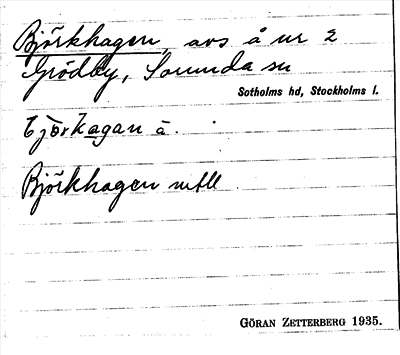 Björkhagen, avs å nr 2
Grödby, Sorunda sn
Sotholms hd, Stockholms l.
björkagan ä.
Björkhagen mtll
GÖRAN ZETTERBERG 1935.